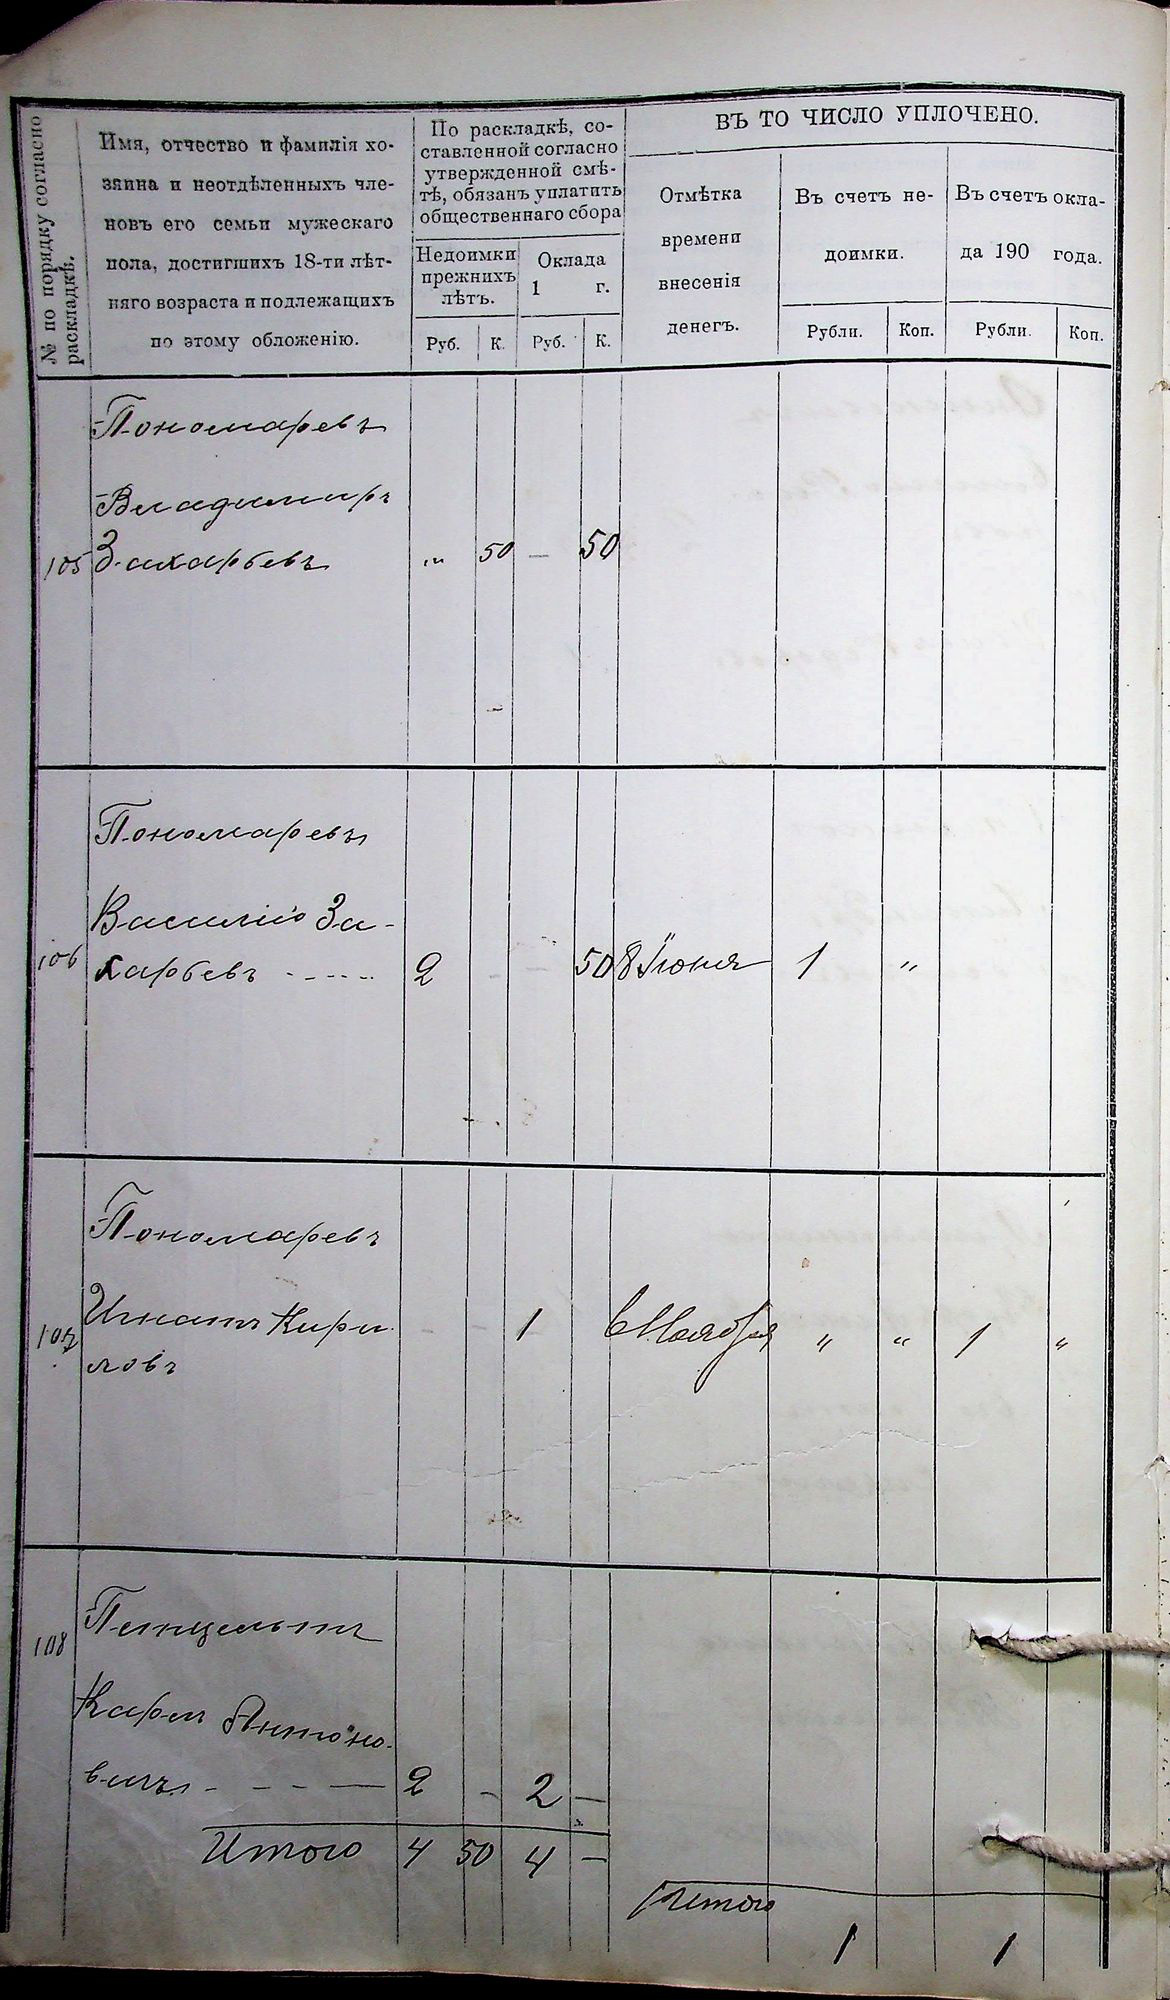 № по порядку согласно
раскладкѣ.
Имя, отчество и фамилія хо-
зяина и неотдѣленныхъ чле-
новъ его семьи мужескаго
пола, достигшихъ 18-ти лѣт-
няго возраста и подлежащихъ
по этому обложенію.
По раскладкѣ, со-
ставленной согласно
утвержденной смѣ-
тѣ, обязанъ уплатить
общественнаго сбора
Недоимки
прежнихъ
лѣтъ.
Оклада
1 г.
Руб. К. Руб. К.
ВЪ ТО ЧИСЛО УПЛОЧЕНО.
Отмѣтка
времени
внесенія
денегъ.
Въ счетъ не-
доимки.
Въ счетъ окла-
да 190 года.
Рубли. Коп. Рубли. Коп.
Пономаревъ
Владимиръ
105 Захарьевъ „ 50 — 50
Пономаревъ
Василій За-
106 харьевъ - - - - - 2 - - 50 8 Іюня 1 „
Пономаревъ
107 Игнатъ Кири- - - 1 6 Ноября „ „ 1 „
ловъ
108
Карлъ Антоно-
вичъ - - - — 2 - 2 —
Итого 4 50 4 —
Итого
1 1